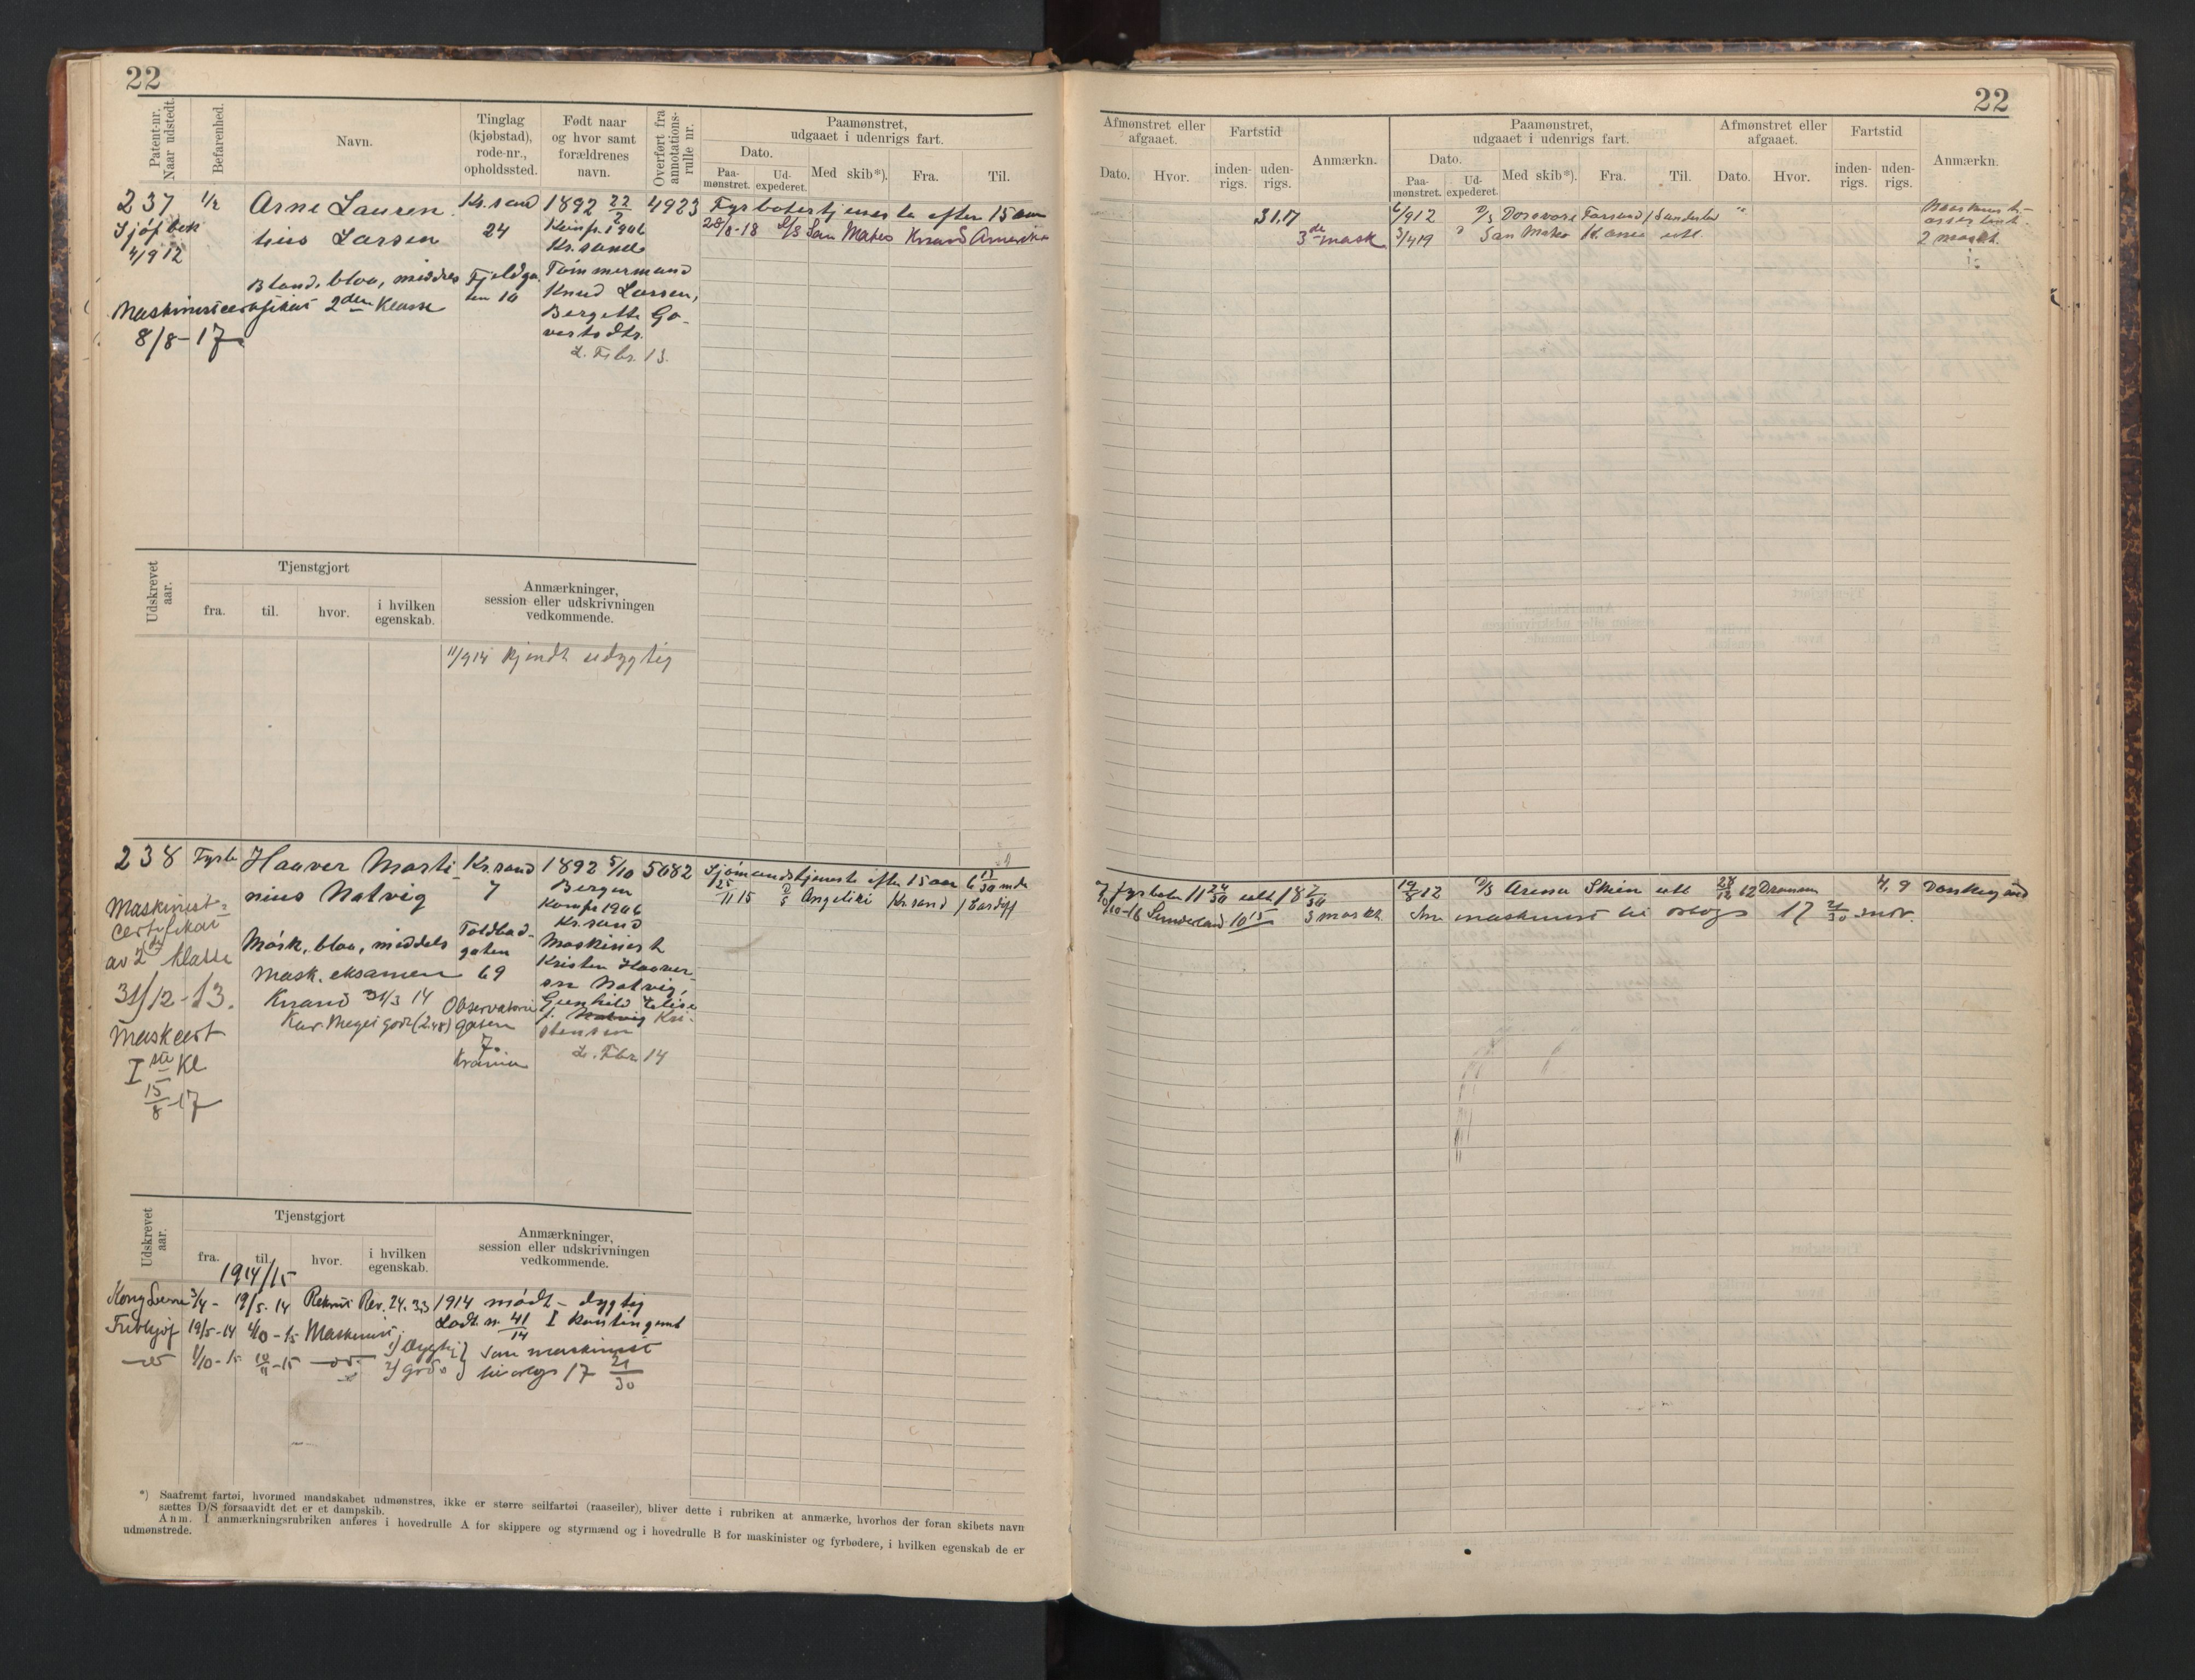 22
Patent-nr. Naar udstedt.
Befarenhed.
Navn.
Tinglag (kjøbstad), rode-nr., opholdssted.
Født naar og hvor samt forældrenes navn.
Overført fra annotations-rulle nr.
Paamønstret, udgaaet i udenrigs fart.
Dato.
Paa-mønstret.
Ud-expederet.
Med skib*).
Fra.
Til.
237
1/2
Arne Lauren
Kr.sand
1892 22/2
4923
Fyrbøtertjeneste efter 15 aar
Sjøfbok
tius Larsen
24
Konf. 1906
28/8-18 D/S San Mateo Krsand Amerika
4/9 12
Kr.sand
Blond, blaa, middels
Fjeldga
Tømmermand
Maskinistcertifikat 2den Klasse
ten 10
Knud Larsen,
8/8-17
Bergette Go-
vertsdtr.
L. Febr. 13.
Udskrevet aar.
Tjenstgjort
fra.
til.
hvor.
i hvilken egenskab.
Anmærkninger, session eller udskrivningen vedkommende.
11/9 14 kjendt udygtig
238
Fyrb
Haaver Marti-
Kr.sand
1892 5/10
5682
Sjømandstjeneste efter 15 aar 6 11/30 mdr
nius Natvig
7
Bergen
25/11 15 D/S Angeliki Kr.sand / Cardiff
Maskinist-
Konf. 1906
certifikat
Kr.sand
av 2den klasse
Mørk, blaa, middels
Toldbod-
Maskinist
31/12-13.
Mask. eksamen
gaten
Kristen Haaver
Krsand 31/3 14
69
sen Natvig,
Kar. Meget godt (2.48)
Observatorie
Gunhild Elise
Maskcert
gaten
f. Natvig Kri-
I ste Kl
7.
stensen
15/8-17
Krania
L. Febr. 14
Udskrevet aar.
Tjenstgjort
fra.
til.
hvor.
i hvilken egenskab.
Anmærkninger, session eller udskrivningen vedkommende.
1914/15
Kong Sverre 3/4 - 19/5. 14 Rekrut Rev. 24.33 1914 mødt - dygtig
Fridtjof 19/5-14 1/10-15 Maskinist Lodt. nr. 41/14 I Kontingent
1/10-15 10/11-15 1) Dygtig 2) god Som maskinist
til orlogs 17 21/30
*) Saafremt fartøi, hvormed mandskabet udmønstres, ikke er større seilfartøi (raaseiler), bliver dette i rubriken at anmærke, hvorhos der foran skibets navn
sættes D/S forsaavidt det er et dampskib.
Anm. I anmærkningsrubriken anføres i hovedrulle A for skippere og styrmænd og i hovedrulle B for maskinister og fyrbødere, i hvilken egenskab de er
udmønstrede.
22
Afmønstret eller afgaaet.
Dato.
Hvor.
Fartstid
inden-rigs.
uden-rigs.
Anmærkn.
Paamønstret, udgaaet i udenrigs fart.
Dato.
Paa-mønstret.
Ud-expederet.
Med skib*).
Fra.
Til.
Afmønstret eller afgaaet.
Dato.
Hvor.
Fartstid
inden-rigs.
uden-rigs.
Anmærkn.
31.17
6/9 12 D/S Dronning Farsund / Sunderland
Maskinist-
assistent
3de mask
3/4 19 San Mateo Kr.ania utl.
2 maskt.
fyrbøter 11 24/30 utl / 8 2/30
19/8 12 D/S Arena Skien utl 28/12 12 Drammen 4, 9 Donkeymand
10-16 Sunderland 10 15
3 maskt.
Som maskinist til orlogs 17 21/30 mdr.